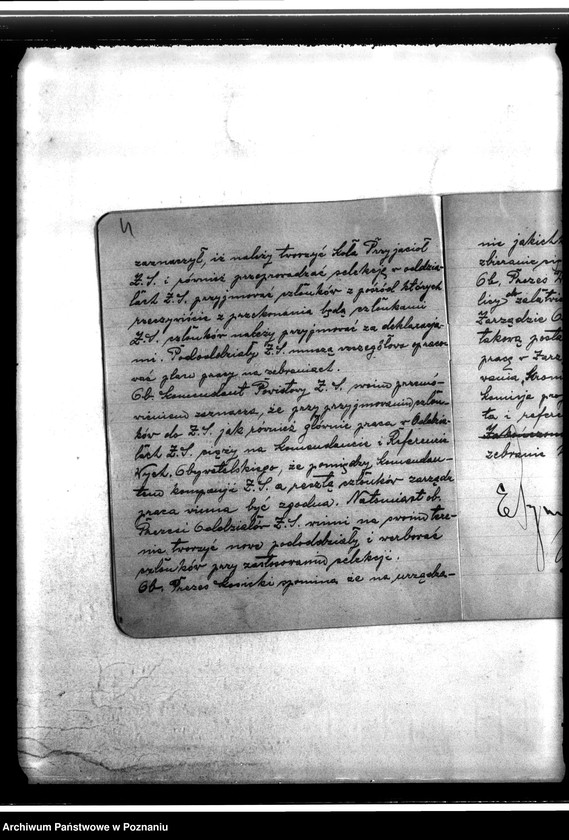 4
zaznarzył, iż należy tworzyć koła Przyjaciół
Z.S. i również przeprowadzać selekcję w oddzia-
łach Z.S. przyjmować członków z pośród których
rzeczywiście z przekonania będą członkami
Z.S. członków należy przyjmować za deklaracja-
mi. Pododdziały Z.S. muszą szczegółowo opraco-
wać plan pracy na zebraniach.
Ob. Komendant Powiatowy Z.S. swoim przemó-
wieniem zaznacza, że przy przyjmowaniu człon-
ków do Z.S. jak również głównie praca w Oddzia-
łach Z.S. ciąży na Komendancie i Referencie
Wych. Obywatelskiego, że pomiędzy Komendan-
tem kompanji Z.S. a resztą członków zarządu
praca winna być zgodna. Natomiast ob.
Prezesi Oddziałów Z.S. winni na swoim tere-
nie tworzyć nowe pododdziały i werbować
członków przy zastosowaniu selekcji.
Ob. Prezes Kosicki spomina że na urządza-
nie jakich
zbierania
Ob. Prezes
Zarządzie
takową
pracę w Zarz
wania,
Komisja
ta i refere
zebranie
Archiwum Państwowe w Poznaniu